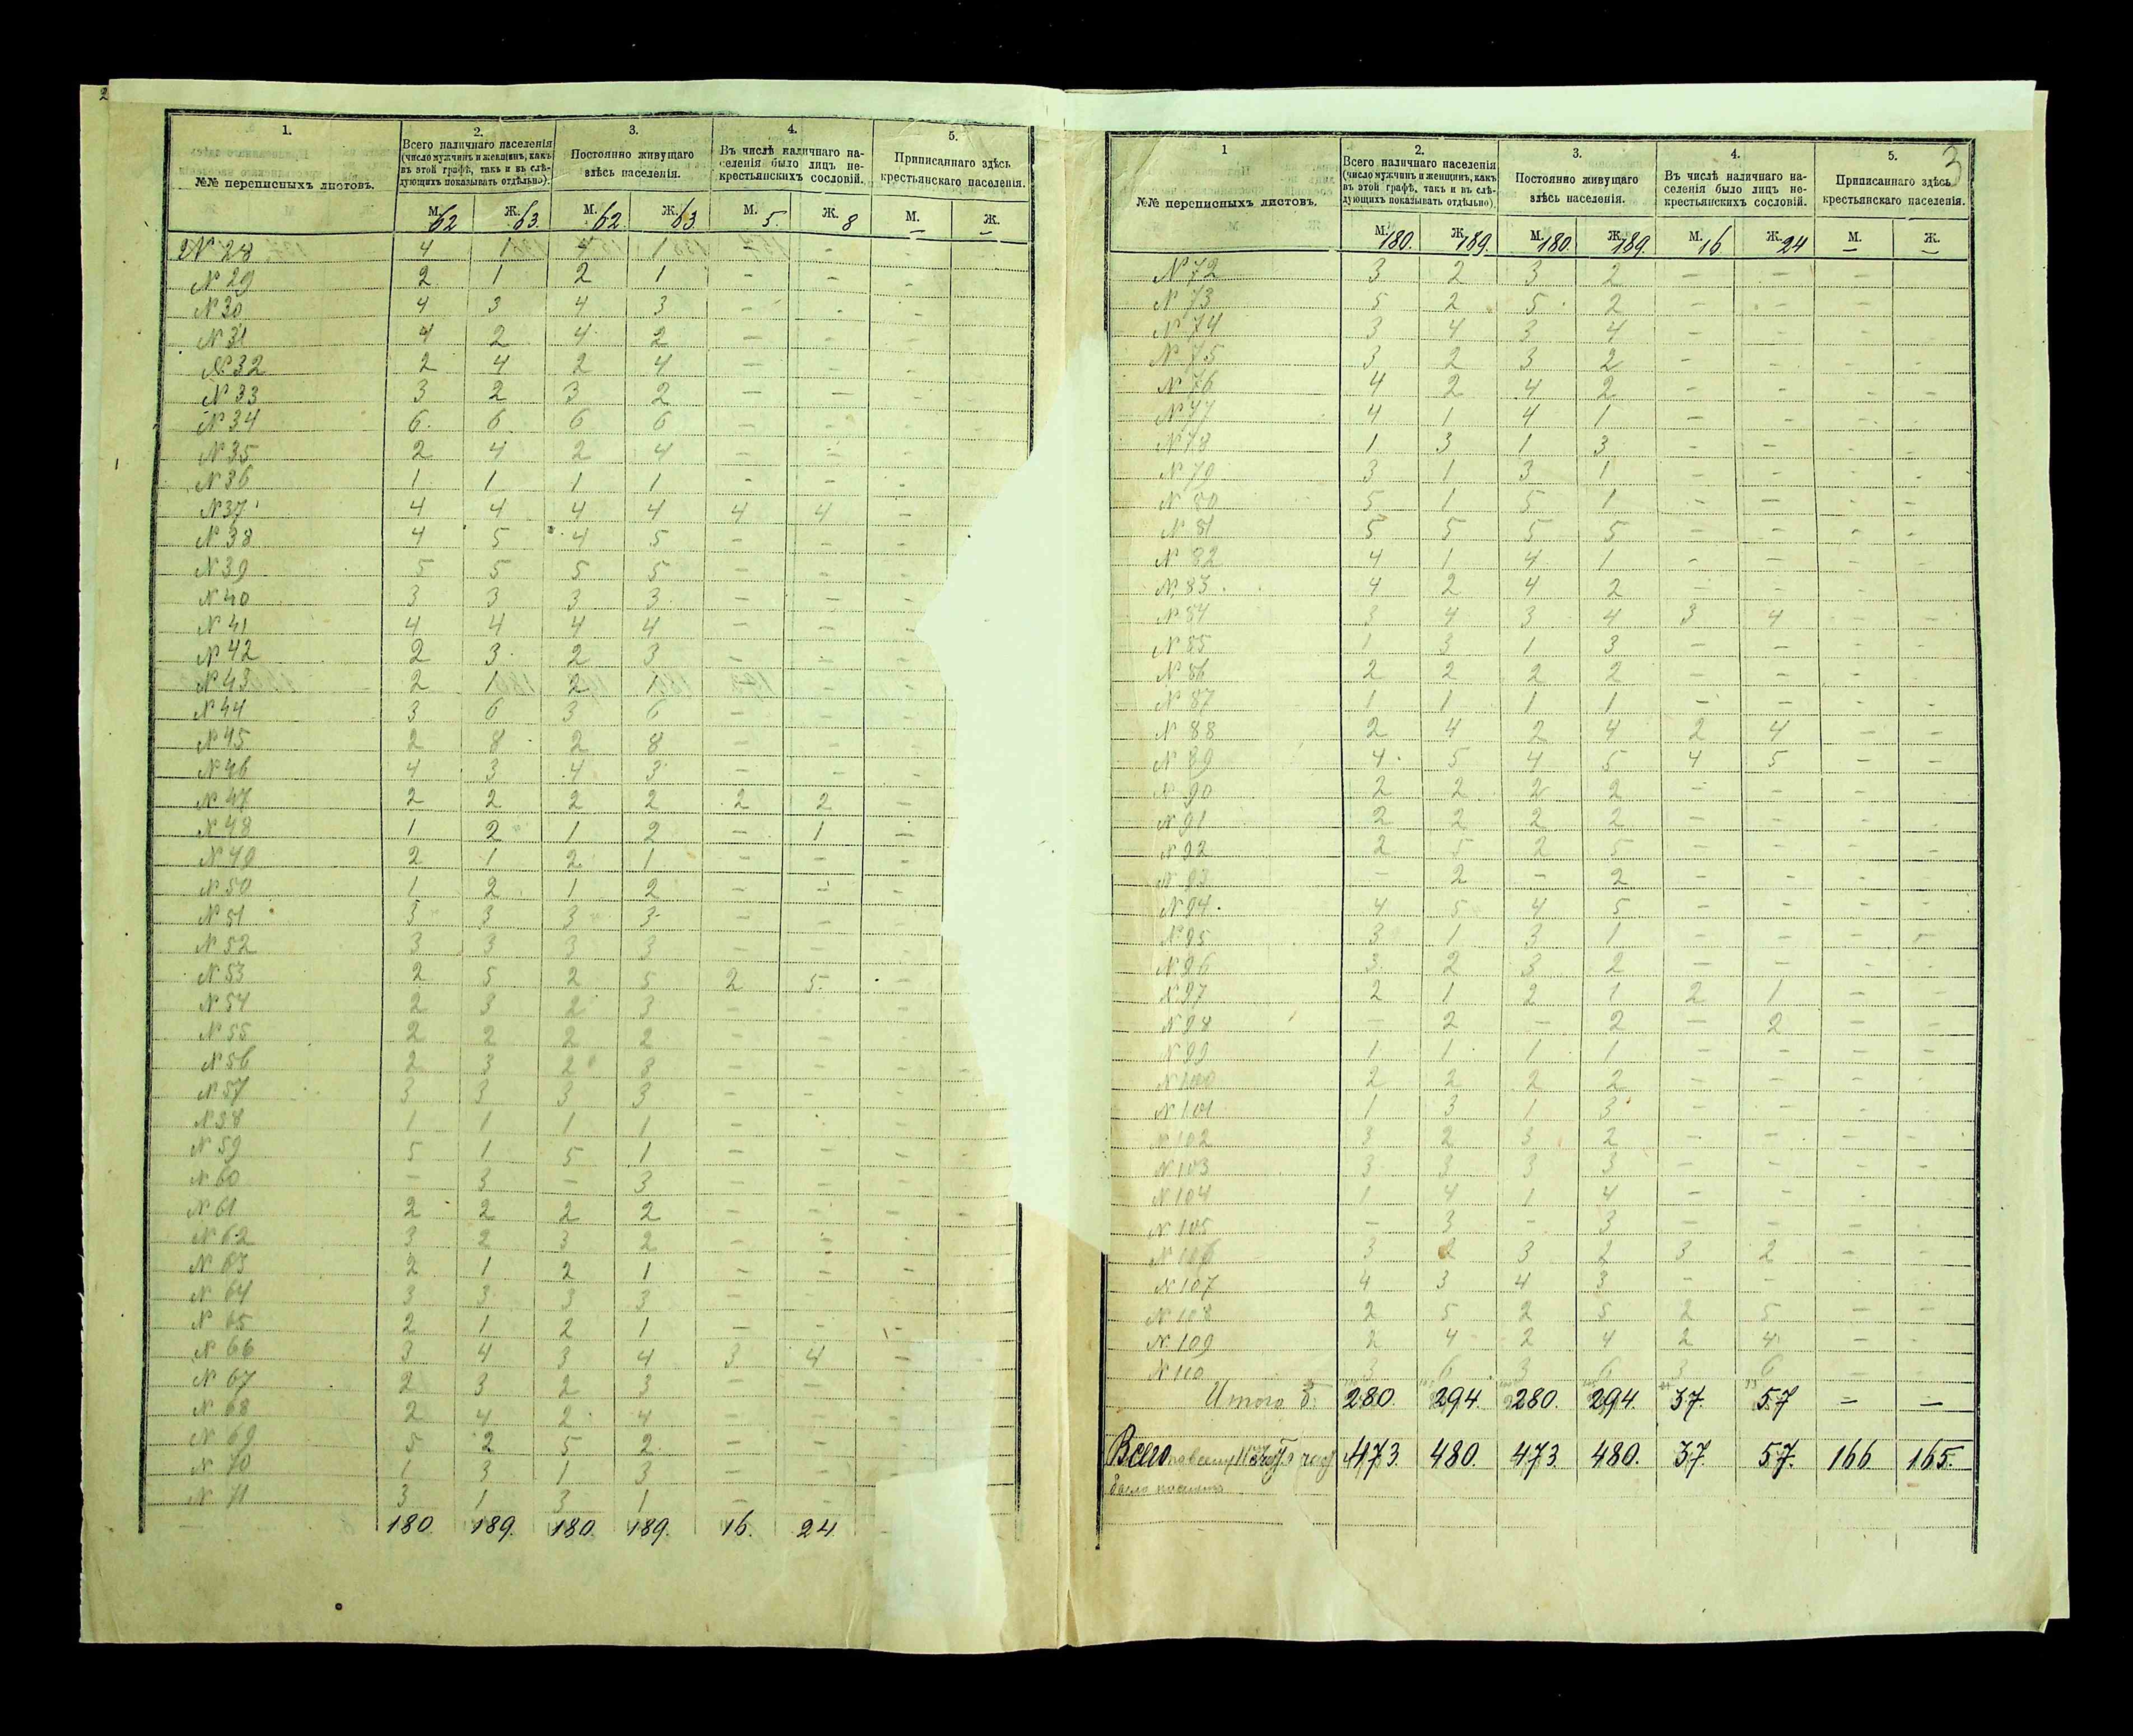 2
1. 2. 3. 4. 5.
№№ переписныхъ листовъ. Всего наличнаго населенія (число мужчинъ и женщинъ, какъ въ этой графѣ, такъ и въ слѣдующихъ показывать отдѣльно). Постоянно живущаго здѣсь населенія. Въ числѣ наличнаго населенія было лицъ не-крестьянскихъ сословій. Приписаннаго здѣсь крестьянскаго населенія.
М. Ж. М. Ж. М. Ж. М. Ж.
62 63 62 63 5 8 — —
№ 28 4 1 4 1 - - -
№ 29 2 1 2 1 - - -
№ 30 4 3 4 3 - - -
№ 31 4 2 4 2 - - -
№ 32 2 4 2 4 - - -
№ 33 3 2 3 2 - - -
№ 34 6 6 6 6 - - -
№ 35 2 4 2 4 - - -
№ 36 1 1 1 1 - - -
№ 37 4 4 4 4 4 4 -
№ 38 4 5 4 5 - - -
№ 39 5 5 5 5 - - -
№ 40 3 3 3 3 - - -
№ 41 4 4 4 4 - - -
№ 42 2 3 2 3 - - -
№ 43 2 1 2 1 - - -
№ 44 3 6 3 6 - - -
№ 45 2 8 2 8 - - -
№ 46 4 3 4 3 - - -
№ 47 2 2 2 2 2 2 -
№ 48 1 2 1 2 - 1 -
№ 49 2 1 2 1 - - -
№ 50 1 2 1 2 - - -
№ 51 3 3 3 3 - - -
№ 52 3 3 3 3 - - -
№ 53 2 5 2 5 2 5 -
№ 54 2 3 2 3 - - -
№ 55 2 2 2 2 - - -
№ 56 2 3 2 3 - - - -
№ 57 3 3 3 3 - - -
№ 58 1 1 1 1 - - -
№ 59 5 1 5 1 - - - -
№ 60 - 3 - 3 - - -
№ 61 2 2 2 2 - - - -
№ 62 3 2 3 2 - - -
№ 63 2 1 2 1 - - -
№ 64 3 3 3 3 - - -
№ 65 2 1 2 1 - - -
№ 66 3 4 3 4 3 4 - -
№ 67 2 3 2 3 - - -
№ 68 2 4 2 4 - - -
№ 69 5 2 5 2 - - -
№ 70 1 3 1 3 - -
№ 71 3 1 3 1 - -
180. 189. 180. 189. 16. 24
3
1 2. 3. 4. 5.
№№ переписныхъ листовъ. Всего наличнаго населенія (число мужчинъ и женщинъ, какъ въ этой графѣ, такъ и въ слѣдующихъ показывать отдѣльно). Постоянно живущаго здѣсь населенія. Въ числѣ наличнаго населенія было лицъ не-крестьянскихъ сословій. Приписаннаго здѣсь крестьянскаго населенія.
М. Ж. М. Ж. М. Ж. М. Ж.
180. 189. 180. 189. 16 24 — —
№ 72 3 2 3 2 - - - -
№ 73 5 2 5 2 - - - -
№ 74 3 4 3 4 - - - -
№ 75 3 2 3 2 - - - -
№ 76 4 2 4 2 - - - -
№ 77 4 1 4 1 - - - -
№ 78 1 3 1 3 - - - -
№ 79 3 1 3 1 - - - -
№ 80 5 1 5 1 - - - -
№ 81 5 5 5 5 - - - -
№ 82 4 1 4 1 - - - -
№ 83 4 2 4 2 - - - -
№ 84 3 4 3 4 3 4 - -
№ 85 1 3 1 3 - - - -
№ 86 2 2 2 2 - - - -
№ 87 1 1 1 1 - - - -
№ 88 2 4 2 4 2 4 - -
№ 89 4 5 4 5 4 5 - -
№ 90 2 2 2 2 - - - -
№ 91 2 2 2 2 - - - -
№ 92 2 5 2 5 - - - -
№ 93 - 2 - 2 - - - -
№ 94 4 5 4 5 - - - -
№ 95 3 1 3 1 - - - -
№ 96 3 2 3 2 - - - -
№ 97 2 1 2 1 2 1 - -
№ 98 - 2 - 2 - 2 - -
№ 99 1 1 1 1 - - - -
№ 100 2 2 2 2 - - - -
№ 101 1 3 1 3 - - - -
№ 102 3 2 3 2 - - - -
№ 103 3 3 3 3 - - - -
№ 104 1 4 1 4 - - - -
№ 105 - 3 - 3 - - - -
№ 106 3 2 3 2 3 2 - -
№ 107 4 3 4 3 - - - -
№ 108 2 5 2 5 2 5 - -
№ 109 2 4 2 4 2 4 - -
№ 110 3 6 3 6 3 6 - -
Итого 280. 294. 280. 294. 37. 57 — —
Всего 473. 480. 473. 480. 37. 57. 166 165.